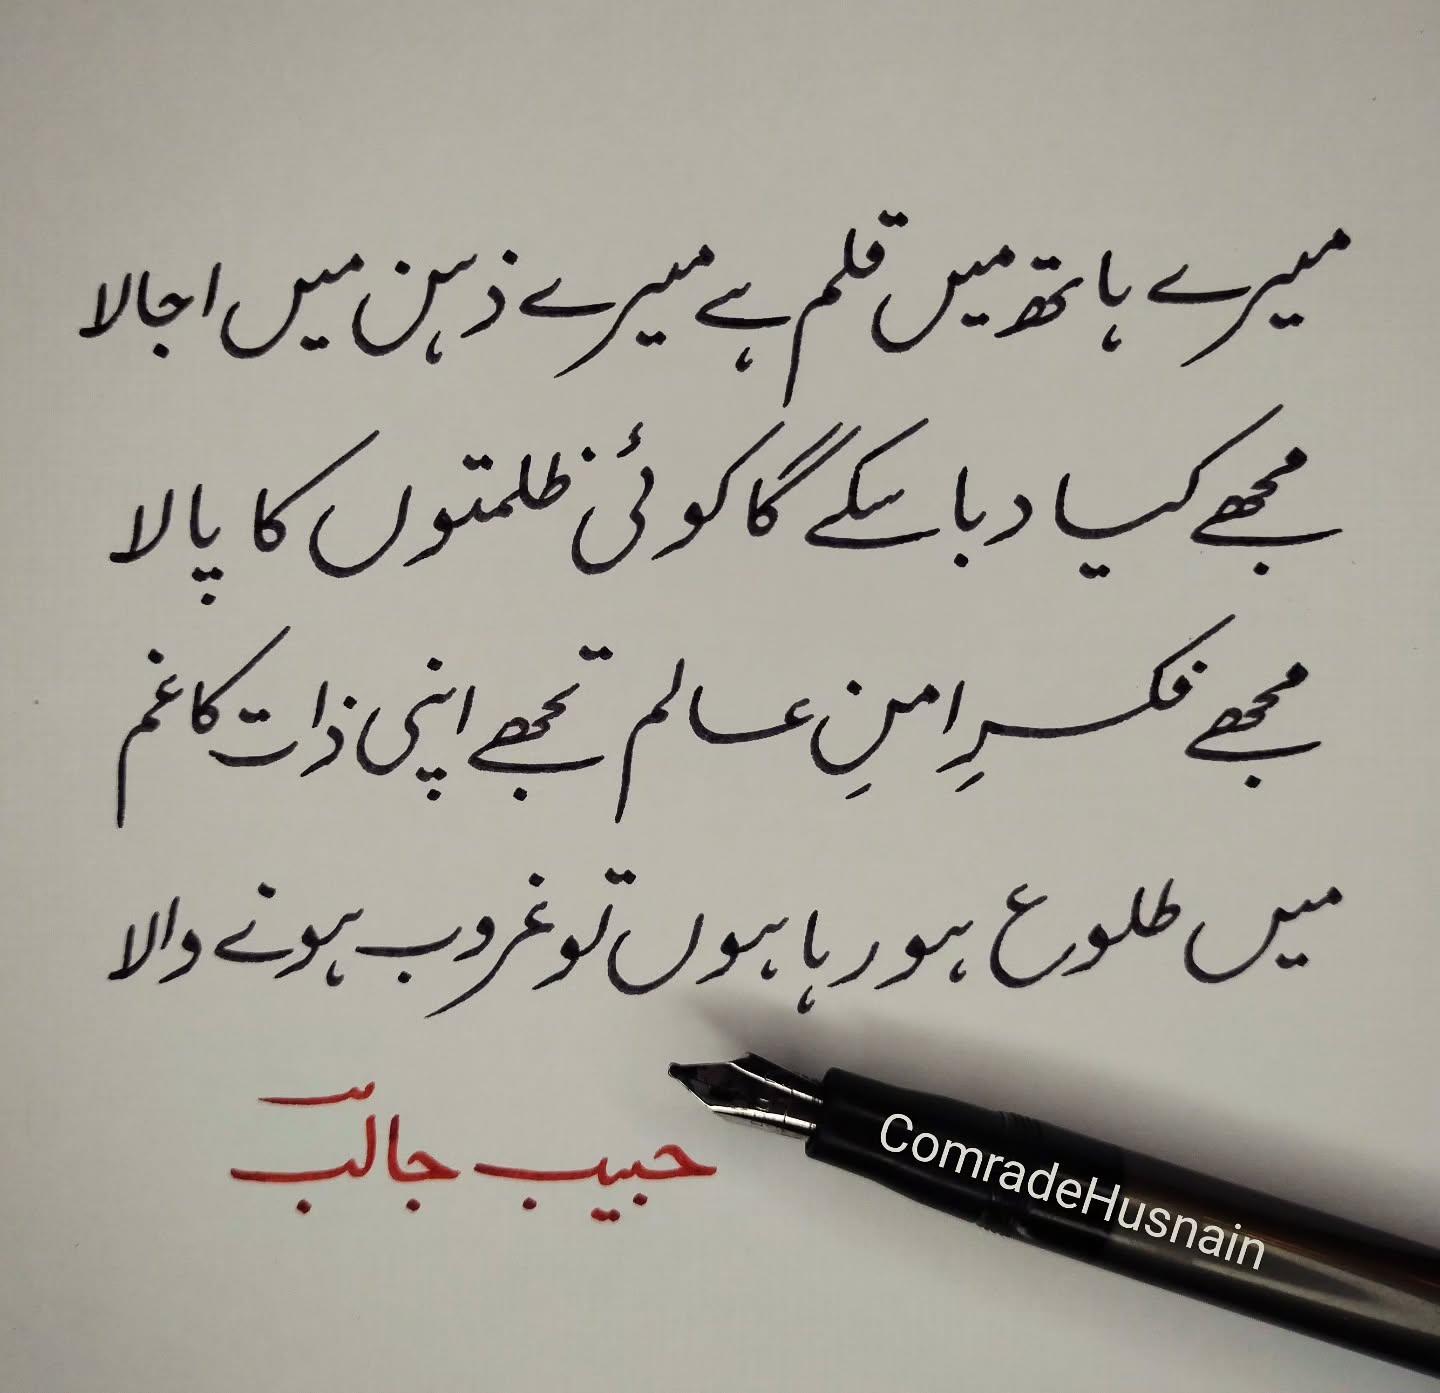 میرے ہاتھ میں قلم ہے میرے ذہن میں اجالا
مجھے کیا دبا سکے گا کوئی ظلمتوں کا پالا
مجھے فکرِ امنِ عالم تجھے اپنی ذات کا غم
میں طلوع ہو رہا ہوں تو غروب ہونے والا
حبیب جالب
ComradeHusnain